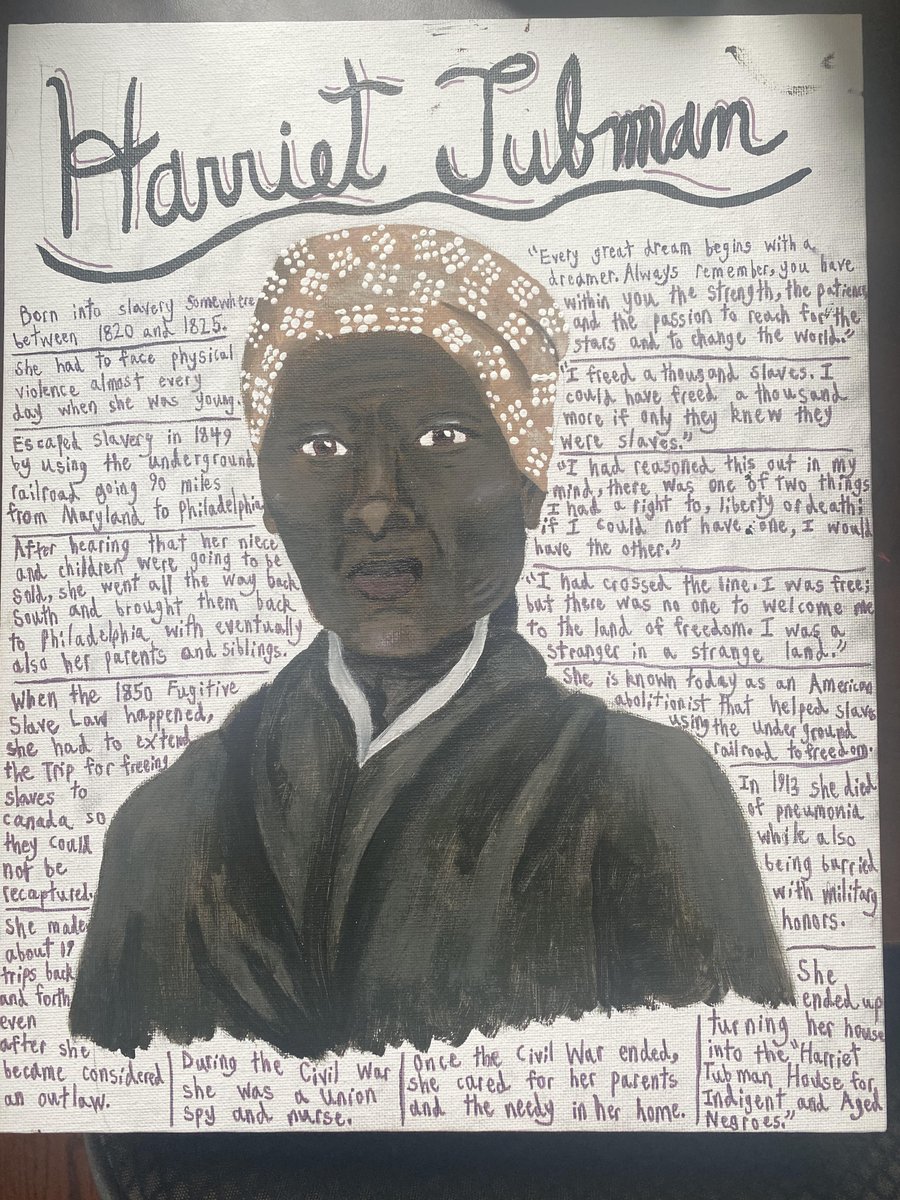 Harriet Tubman
Born into slavery somewhere
between 1820 and 1825.
she had to face physical
violence almost every
day when she was young.
Escaped slavery in 1849
by using the underground
railroad going 90 miles
from Maryland to Philadelphia.
After hearing that her niece
and children were going to be
sold, she went all the way back
South and brought them back
to Philadelphia with eventually
also her parents and siblings.
When the 1850 Fugitive
Slave Law happened,
she had to extend
the Trip for freeing
slaves to
canada so
they could
not be
recaptured.
She made
about 19
trips back
and forth
even
after she
became considered
an outlaw.
During the Civil War
she was a union
spy and nurse.
Once the Civil War ended,
she cared for her parents
and the needy in her home.
"Every great dream begins with a
dreamer. Always remember, you have
within you the strength, the patience
and the passion to reach for "the
stars and to change the world."
"I freed a thousand slaves. I
could have freed a thousand
more if only they knew they
were slaves."
"I had reasoned this out in my
mind, there was one of two things
I had a right to, liberty or death;
if I could not have one, I would
have the other."
"I had crossed the line. I was free;
but there was no one to welcome me
to the land of freedom. I was a
stranger in a strange land."
She is known today as an American
abolitionist that helped slaves
using the underground
railroad to freedom.
In 1913 she died
of pneumonia
while also
being burried
with military
honors.
She
ended up
turning her house
into the "Harriet
Tubman House for
Indigent and Aged
Negroes."